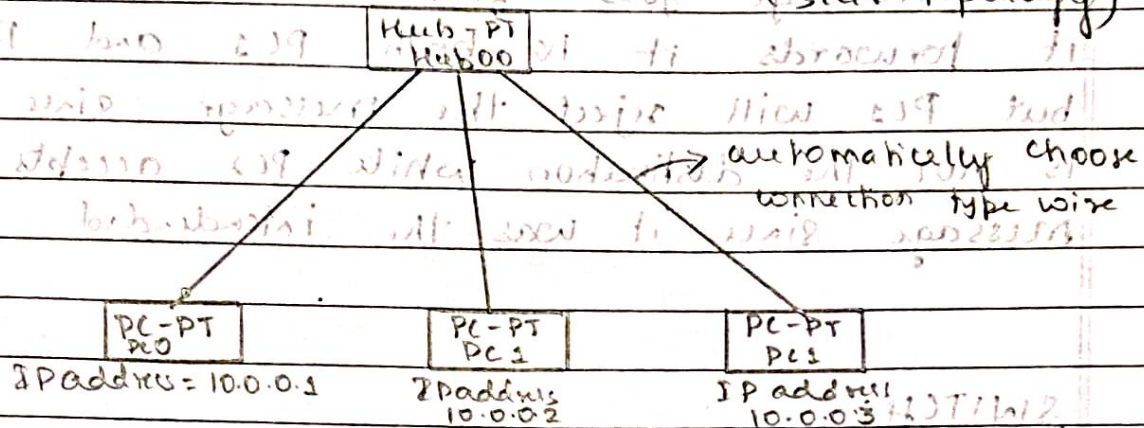 (Star Topology)
Hub-PT
Hub00
automatically choose
connection type wire
PC-PT
PC0
IP address = 10.0.0.1
PC-PT
PC1
IP address
10.0.0.2
PC-PT
PC1
IP address
10.0.0.3